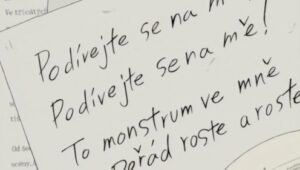 Podívejte se na mě!
Podívejte se na mě!
To monstrum ve mně
Pořád roste a roste